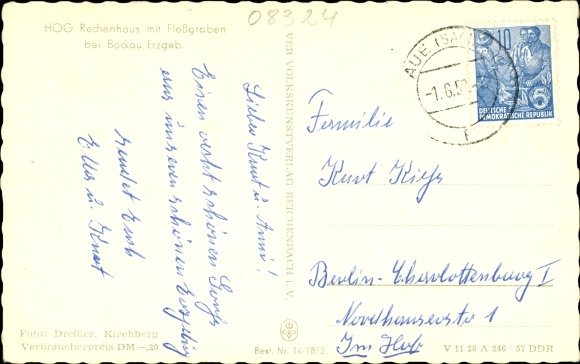 08324
HOG Rechenhaus mit Floßgraben
bei Bockau, Erzgeb.
Liebe Knut u. Anni!
Einen recht schönen Gruß
aus unseren schönen Erzgebirg
sendet Euch
Ella u. Knut
VEB VOLKSKUNSTVERLAG REICHENBACH i. V.
AUE (SACHS)
-1.6.5
f
10
5
DEUTSCHE
DEMOKRATISCHE REPUBLIK
Familie
Kurt Kieß
Berlin-Charlottenburg I
Nordhauserstr 1
Im Hof
Foto: Dreßler, Kirchberg
Verbraucherpreis DM -,20
Best.-Nr. 14/1882
V 11 28 A 246 / 57 DDR